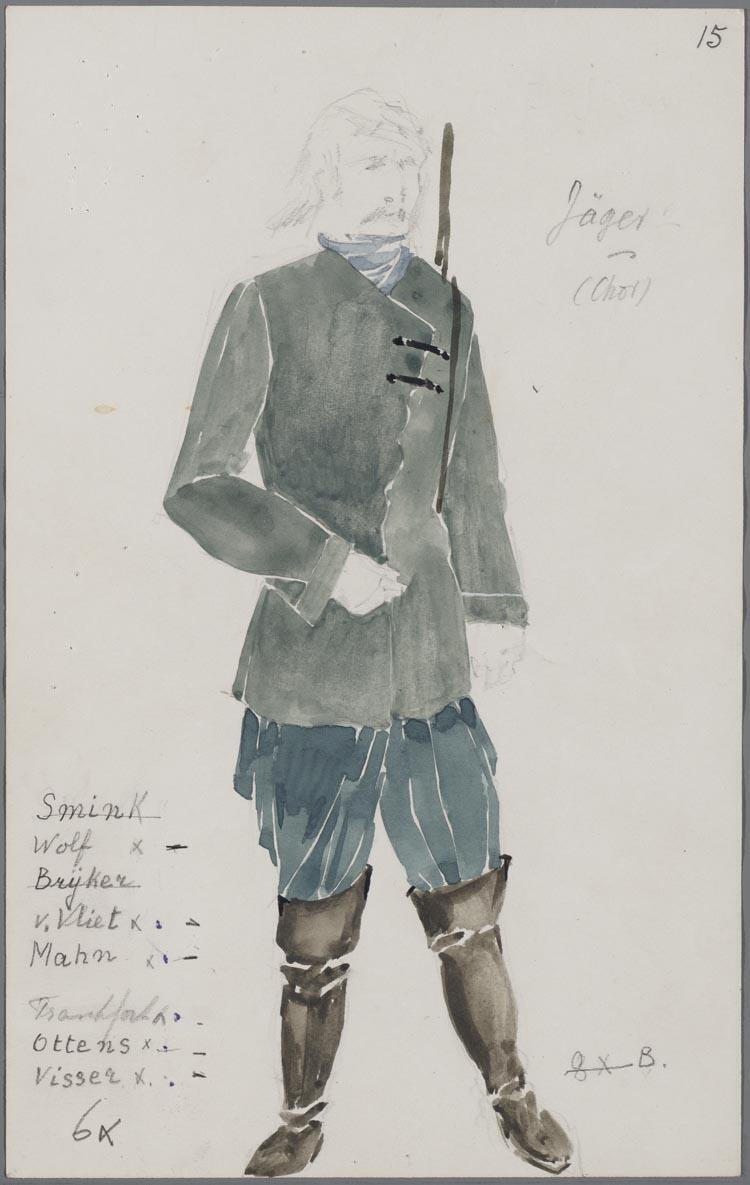 15
Jäger
(Chor)
Smink
Wolf x -
Brijker
v. Vliet x . -
Mahn x . -
Frankfort x . -
Ottens x . -
Visser x . -
6x
8x B.